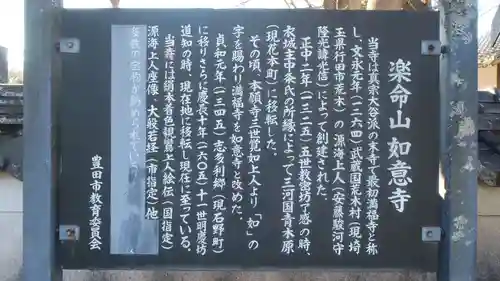 楽命山 如意寺
当寺は真宗大谷派の末寺で最初満福寺と称
し、文永元年(一二六四)武蔵国荒木村(現埼
玉県行田市荒木)の源海上人(安藤駿河守
隆光諱光信)によって創建された。
正中二年(一三二五)五世教密坊了感の時、
衣城主中条氏の所縁によって三河国青木原
(現花本町)に移転した。
その頃、本願寺三世覚如上人より「如」の
字を賜わり満福寺を如意寺と改めた。
貞和元年(一三四五)志多利郷(現石野町)
に移りさらに慶長十年(一六〇五)十一世明慶坊
道知の時、現在地に移転し現在に至っている。
当寺には絹本著色親鸞上人絵伝(国指定)
源海上人座像、大般若経(市指定)他
多数の宝物が納められている。
豊田市教育委員会